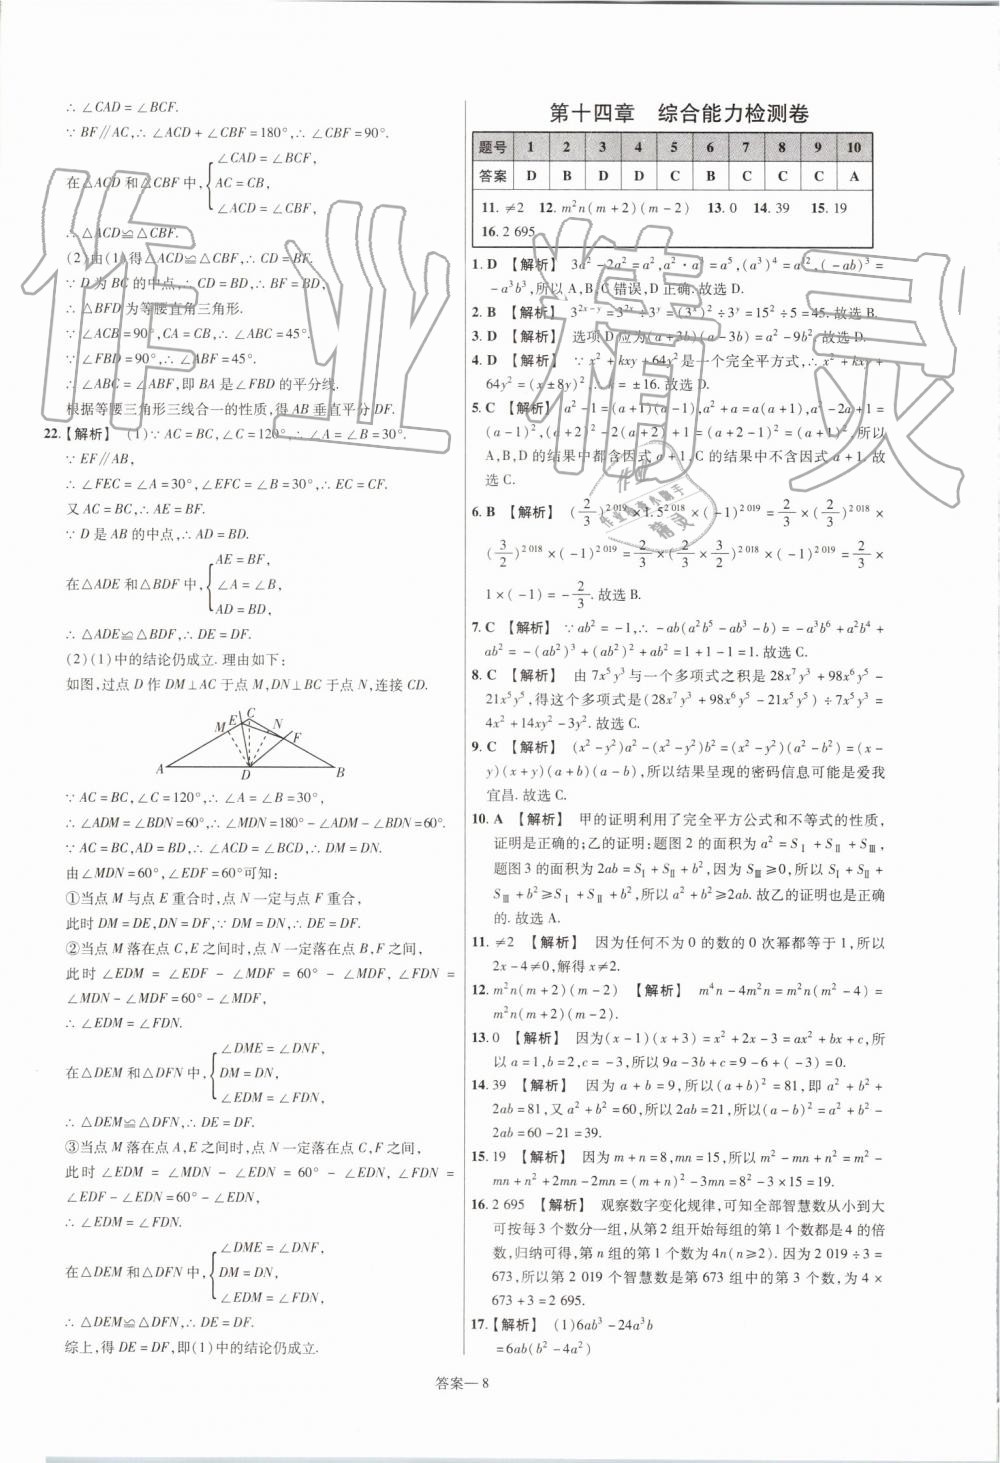 ∴ ∠CAD = ∠BCF.
∵ BF∥AC, ∴ ∠ACD + ∠CBF = 180°, ∴ ∠CBF = 90°.
∠CAD = ∠BCF,
在△ACD 和△CBF 中, AC = CB,
∠ACD = ∠CBF,
∴ △ACD≌△CBF.
(2)由(1)得△ACD≌△CBF, ∴ CD = BF.
∵ D 为 BC 的中点, ∴ CD = BD, ∴ BF = BD,
∴ △BFD 为等腰直角三角形.
∵ ∠ACB = 90°, CA = CB, ∴ ∠ABC = 45°.
∵ ∠FBD = 90°, ∴ ∠ABF = 45°.
∴ ∠ABC = ∠ABF, 即 BA 是∠FBD 的平分线.
根据等腰三角形三线合一的性质, 得 AB 垂直平分 DF.
22.【解析】 (1)∵ AC = BC, ∠C = 120°, ∴ ∠A = ∠B = 30°.
∵ EF∥AB,
∴ ∠FEC = ∠A = 30°, ∠EFC = ∠B = 30°, ∴ EC = CF.
又 AC = BC, ∴ AE = BF.
∵ D 是 AB 的中点, ∴ AD = BD.
AE = BF,
在△ADE 和△BDF 中, ∠A = ∠B,
AD = BD,
∴ △ADE≌△BDF, ∴ DE = DF.
(2)(1)中的结论仍成立. 理由如下:
如图, 过点 D 作 DM⊥AC 于点 M, DN⊥BC 于点 N, 连接 CD.
C
E
M N
F
A D B
∵ AC = BC, ∠C = 120°, ∴ ∠A = ∠B = 30°,
∴ ∠ADM = ∠BDN = 60°, ∴ ∠MDN = 180° − ∠ADM − ∠BDN = 60°.
∵ AC = BC, AD = BD, ∴ ∠ACD = ∠BCD, ∴ DM = DN.
由∠MDN = 60°, ∠EDF = 60°可知:
①当点 M 与点 E 重合时, 点 N 一定与点 F 重合,
此时 DM = DE, DN = DF, ∵ DM = DN, ∴ DE = DF.
②当点 M 落在点 C, E 之间时, 点 N 一定落在点 B, F 之间,
此时 ∠EDM = ∠EDF − ∠MDF = 60° − ∠MDF, ∠FDN =
∠MDN − ∠MDF = 60° − ∠MDF,
∴ ∠EDM = ∠FDN.
∠DME = ∠DNF,
在△DEM 和△DFN 中, DM = DN,
∠EDM = ∠FDN,
∴ △DEM≌△DFN, ∴ DE = DF.
③当点 M 落在点 A, E 之间时, 点 N 一定落在点 C, F 之间,
此时 ∠EDM = ∠MDN − ∠EDN = 60° − ∠EDN, ∠FDN =
∠EDF − ∠EDN = 60° − ∠EDN,
∴ ∠EDM = ∠FDN.
∠DME = ∠DNF,
在△DEM 和△DFN 中, DM = DN,
∠EDM = ∠FDN,
∴ △DEM≌△DFN, ∴ DE = DF.
综上, 得 DE = DF, 即(1)中的结论仍成立.
第十四章 综合能力检测卷
题号 1 2 3 4 5 6 7 8 9 10
答案 D B D D C B C C C A
11. ≠2 12. m²n(m+2)(m−2) 13. 0 14. 39 15. 19
16. 2 695
1. D 【解析】 3a² − 2a² = a², a² · a³ = a⁵, (a³)⁴ = a¹², (−ab)³ =
−a³b³, 所以 A, B, C 错误, D 正确. 故选 D.
2. B 【解析】 3²ˣ⁻ʸ = 3²ˣ ÷ 3ʸ = (3ˣ)² ÷ 3ʸ = 15² ÷ 5 = 45. 故选 B.
3. D 【解析】 选项 D 应为(a+3b)(a−3b) = a² − 9b². 故选 D.
4. D 【解析】 ∵ x² + kxy + 64y² 是一个完全平方式, ∴ x² + kxy +
64y² = (x±8y)², ∴ k = ±16. 故选 D.
5. C 【解析】 a² − 1 = (a+1)(a−1), a² + a = a(a+1), a² − 2a + 1 =
(a−1)², (a+2)² − 2(a+2) + 1 = (a+2−1)² = (a+1)². 所以
A, B, D 的结果中都含因式 a+1, C 的结果中不含因式 a+1. 故
选 C.
6. B 【解析】 (2/3)²⁰¹⁹ × 1.5²⁰¹⁸ × (−1)²⁰¹⁹ = 2/3 × (2/3)²⁰¹⁸ ×
(3/2)²⁰¹⁸ × (−1)²⁰¹⁹ = 2/3 × (2/3 × 3/2)²⁰¹⁸ × (−1)²⁰¹⁹ = 2/3 ×
1 × (−1) = −2/3. 故选 B.
7. C 【解析】 ∵ ab² = −1, ∴ −ab(a²b⁵ − ab³ − b) = −a³b⁶ + a²b⁴ +
ab² = −(ab²)³ + (ab²)² + ab² = 1 + 1 − 1 = 1. 故选 C.
8. C 【解析】 由 7x⁵y³ 与一个多项式之积是 28x⁷y³ + 98x⁶y⁵ −
21x⁵y⁵, 得这个多项式是(28x⁷y³ + 98x⁶y⁵ − 21x⁵y⁵) ÷ 7x⁵y³ =
4x² + 14xy² − 3y². 故选 C.
9. C 【解析】 (x² − y²)a² − (x² − y²)b² = (x² − y²)(a² − b²) = (x −
y)(x+y)(a+b)(a−b), 所以结果呈现的密码信息可能是爱我
宜昌. 故选 C.
10. A 【解析】 甲的证明利用了完全平方公式和不等式的性质,
证明是正确的; 乙的证明: 题图 2 的面积为 a² = SⅠ + SⅡ + SⅢ,
题图 3 的面积为 2ab = SⅠ + SⅡ + b², 因为 SⅢ ≥ 0, 所以 SⅠ + SⅡ +
SⅢ + b² ≥ SⅠ + SⅡ + b², 所以 a² + b² ≥ 2ab. 故乙的证明也是正确
的. 故选 A.
11. ≠2 【解析】 因为任何不为 0 的数的 0 次幂都等于 1, 所以
2x − 4 ≠ 0, 解得 x ≠ 2.
12. m²n(m+2)(m−2) 【解析】 m⁴n − 4m²n = m²n(m² − 4) =
m²n(m+2)(m−2).
13. 0 【解析】 因为(x−1)(x+3) = x² + 2x − 3 = ax² + bx + c, 所
以 a = 1, b = 2, c = −3, 所以 9a − 3b + c = 9 − 6 + (−3) = 0.
14. 39 【解析】 因为 a + b = 9, 所以(a+b)² = 81, 即 a² + b² +
2ab = 81, 又 a² + b² = 60, 所以 2ab = 21, 所以(a−b)² = a² + b² −
2ab = 60 − 21 = 39.
15. 19 【解析】 因为 m + n = 8, mn = 15, 所以 m² − mn + n² = m² −
mn + n² + 2mn − 2mn = (m+n)² − 3mn = 8² − 3 × 15 = 19.
16. 2 695 【解析】 观察数字变化规律, 可知全部智慧数从小到大
可按每 3 个数分一组, 从第 2 组开始每组的第 1 个数都是 4 的倍
数, 归纳可得, 第 n 组的第 1 个数为 4n(n≥2). 因为 2 019 ÷ 3 =
673, 所以第 2 019 个智慧数是第 673 组中的第 3 个数, 为 4 ×
673 + 3 = 2 695.
17. 【解析】 (1)6ab³ − 24a³b
= 6ab(b² − 4a²)
答案—8
作业精灵
作业
精灵